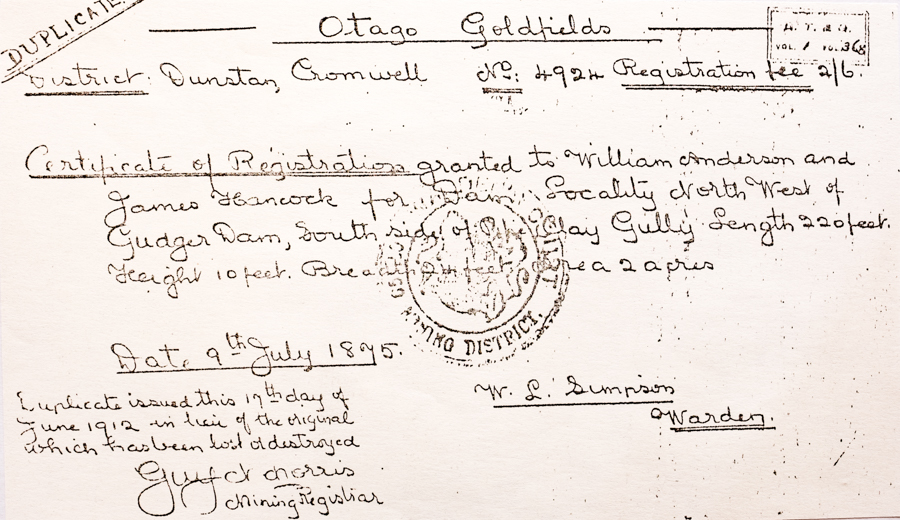 DUPLICATE
Otago Goldfields
VOL. 1 368
District. Dunstan, Cromwell No: 4924 Registration fee 2/6.
Certificate of Registration granted to William Anderson and
James Hancock for Dam. Locality North West of
Gudger Dam, South side of Pipe Clay Gully Length 220 feet.
Height 10 feet. Breadth feet. Area 2 acres
MINING DISTRICT.
Date 9th July 1875.
Duplicate issued this 17th day of
June 1912 in lieu of the original
which has been lost or destroyed
W. L. Simpson
Warden.
Morris
Mining Registrar